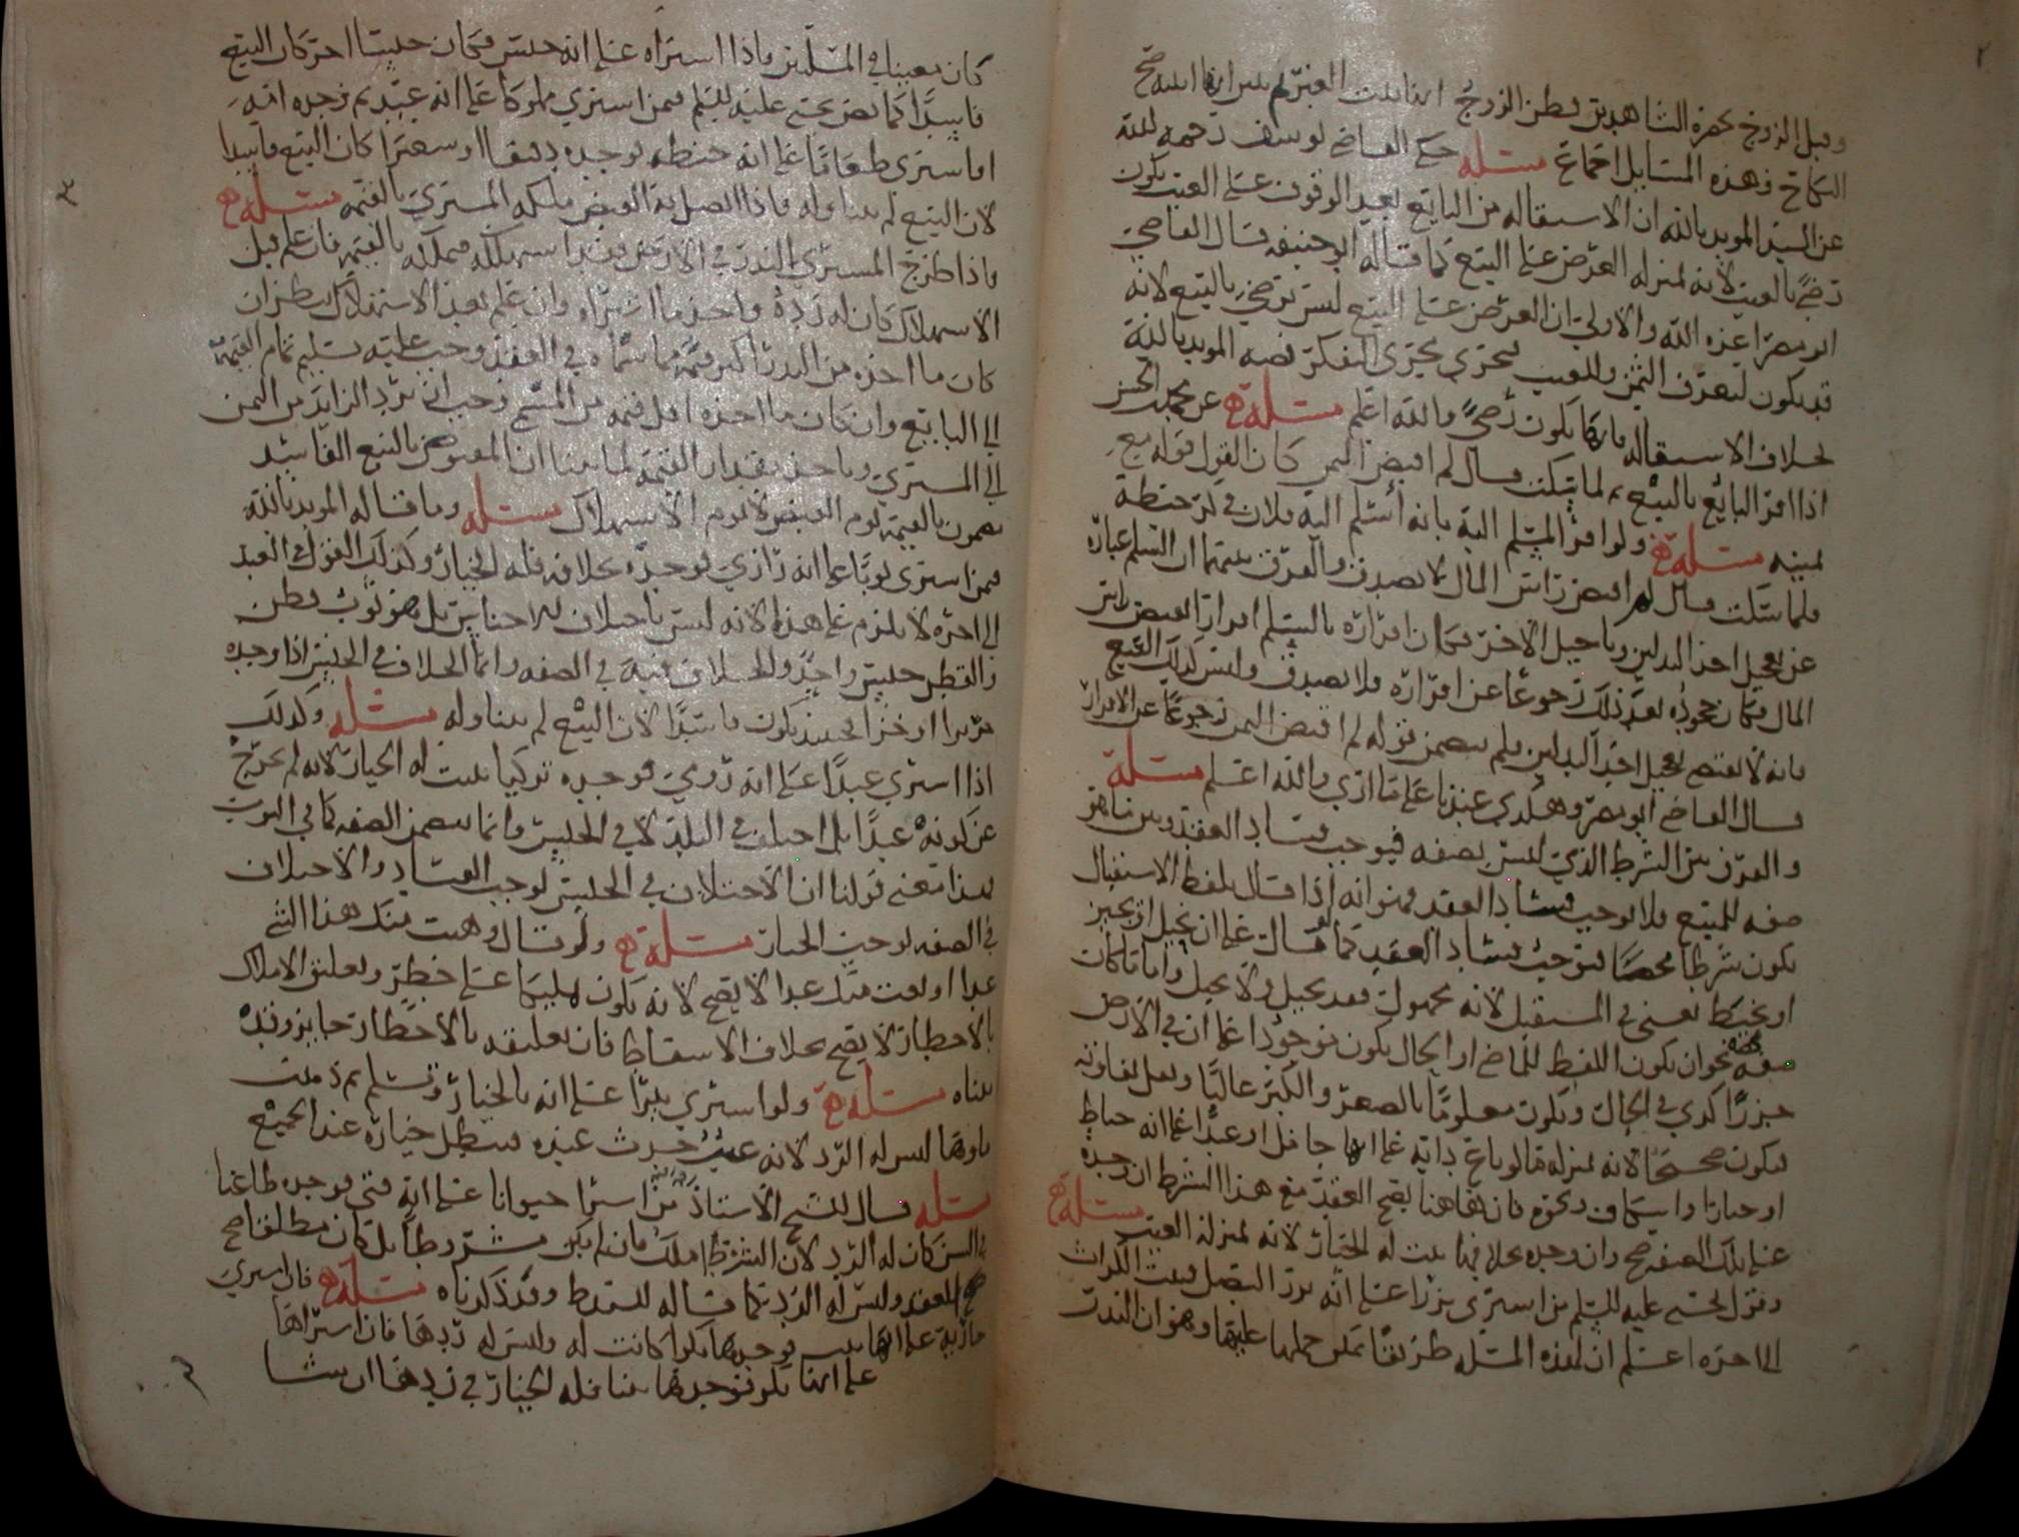 وقبل الزوج بحضرة الشاهدين فظن الزوج انها بنت العير ثم تبين انها ابنته صح
النكاح وهذه المسائل اجماع مسئلة حكى القاضي يوسف رحمه الله
عن السيد المويد بالله ان الاستقالة من البايع بعد الوقوف على العيب يكون
رضىً بالعيب لانه بمنزلة العرض على البيع كما قاله ابو حنيفه قال القاضي
ابو مضر اعزه الله والاولى ان العرض على البيع ليس برضى بالبيع لانه
قد يكون ليعرف الثمن وللعيب فيجري مجرى الفكر فيه المويد بالله
بخلاف الاستقالة فانها يكون رضىً والله اعلم مسئلة عن محمد بن الحسن
اذا اقر البايع بالبيع ثم لما سكت قال لم اقبض الثمن كان القول قوله مع
يمينه مسئلة ولو اقر المسلم اليه بانه أسلم اليه فلان في كر حنطة
فلما سكت قال لم اقبض راس المال لا يصدق والفرق بينهما ان السلم عبارة
عن تعجيل احد البدلين وتاجيل الآخر فكان اقراره بالسلم اقرارا بقبض راس
المال فكان جحوده بعد ذلك رجوعًا عن اقراره فلا يصدق وليس كذلك البيع
فانه لا يقتضي تعجيل احد البدلين فلم يتضمن قوله لم اقبض الثمن رجوعًا عن الاقرار
قال القاضي ابو مضر وهكذي عندنا على ما ارى والله اعلم مسئلة
والفرق بين الشرط الذي ليس بصفه فيوجب فساد العقد وبين ما هو
صفه للمبيع فلا يوجب فساد العقد فهو انه اذا قال بلفظ الاستقبال
يكون شرطا محضًا فيوجب فساد العقد كما لو قال على ان يحيل او يجيز
او يخيط يعني في المستقبل لانه مجهول فقد يحيل ولا يحيل واما ما كان
صفه فهو ان يكون اللفظ للماضي او الحال يكون موجودًا على ان في الارض
جزرًا كذى في الحال ويكون معلومًا بالصغر والكبر غالبًا ويقل تفاوته
فيكون صحيحًا لانه بمنزلة ما لو باع دابة على انها حامل او عبدًا على انه خياط
او خباز او اسكاف ونحوه فان هاهنا يصح العقد مع هذا الشرط ان وجده
على تلك الصفه صح وان وجده بخلافها يثبت له الخيار لانه بمنزلة العيب مسئلة
وقول يحيى عليه السلم من اشترى بزرا على انه بزر البصل فنبت الكراث
الى اخره اعلم ان لهذه المسئلة طريقًا يمكن حملها عليها وهو ان البذر
كان معينا في المسئلتين فاذا اشتراه على انه جنس فكان جنسا اخر كان البيع
فاسدًا كما نص يحيى عليه السلم فيمن اشترى مملوكا على انه عبد ثم وجده امة
او اشترى طعامًا على انه حنطه فوجده دقيقا او شعيرا كان البيع فاسدا
لان البيع لم يتناوله فاذا اتصل به القبض ملكه المشتري بالقيمه مسئلة
واذا طرح المشتري البذر في الارض فقد استهلكه فيملكه بالقيمه فان علم قبل
الاستهلاك كان له رده واخذ ما اشتراه وان علم بعد الاستهلاك ينظر ان
كان ما اخذه من البذر اكثر قيمة مما سماه في العقد وجب عليه تسليم تمام القيمة
الى البايع وان كان ما اخذه اقل قيمه من المسمى وجب ان يرد الزايد من الثمن
الى المشتري وياخذ مقدار القيمة لما بينا ان المقبوض بالبيع الفاسد
مضمون بالقيمة يوم القبض لا يوم الاستهلاك مسئلة وما قاله المويد بالله
فيمن اشترى ثوبًا على انه رازي فوجده بخلافه فله الخيار وكذلك القول في العبد
الى اخره لا يلزم على هذا لانه ليس باختلاف الاجناس بل هو ثوب قطن
والقطن جنس واحد والخلاف فيه في الصفه وانما الخلاف في الجنس اذا وجده
حريرا او خزا فحينئذ يكون فاسدًا لان البيع لم يتناوله مسئلة وكذلك
اذا اشترى عبدًا على انه رومي فوجده تركيا يثبت له الخيار لانه لم يخرج
عن كونه عبدًا بل اختلف في البلد لا في الجنس وانما يتضمن الصفه كما في الثوب
فهذا معنى قولنا ان الاختلاف في الجنس يوجب الفساد والاختلاف
في الصفه يوجب الخيار مسئلة ولو قال وهبت منك هذا الشي
غدا او بعت منك غدا لا يصح لانه يكون تمليكا على خطر وتعليق الاملاك
بالاخطار لا يصح بخلاف الاسقاط فان تعليقه بالاخطار جايز وقد
بيناه مسئلة ولو اشترى بقرًا على انه بالخيار وتسلم ثم ذهبت
لبس له الرد لانه عيب حدث عنده فيبطل خياره عند الجميع
مسئلة قال الشيخ الاستاذ من اشترا حيوانا على انه فتي فوجده طاعنا
في السن كان له الرد لان الشرط املك فان لم يكن مشروطا بل كان مطلقا صح
صح العقد وليس له الرد كما قاله وقد ذكرناه مسئلة فان اشترى
جارية على انها ثيب فوجدها بكرا كانت له وليس له ردها فان اشتراها
على انها بكر فوجدها ثيبا فله الخيار في ردها ان شا